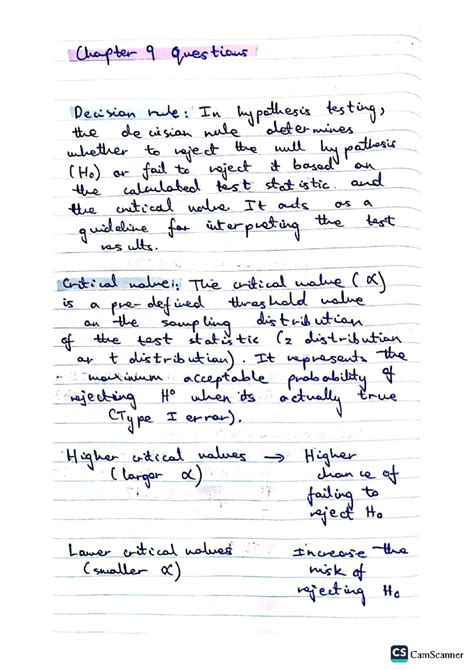 Chapter 9 Questions
Decision rule: In hypothesis testing,
the decision rule determines
whether to reject the null hypothesis
(H0) or fail to reject it based on
the calculated test statistic. and
the critical value It acts as a
guideline for interpreting the test
results.
Critical value:, The critical value (α)
is a pre-defined threshold value
on the sampling distribution
of the test statistic (z distribution
or t distribution). It represents the
maximum acceptable probability of
rejecting H° when its actually true
(Type I error).
Higher critical values → Higher
(larger α) chance of
failing to
reject H0
Lower critical values Increase the
(smaller α) risk of
rejecting H0
CS CamScanner